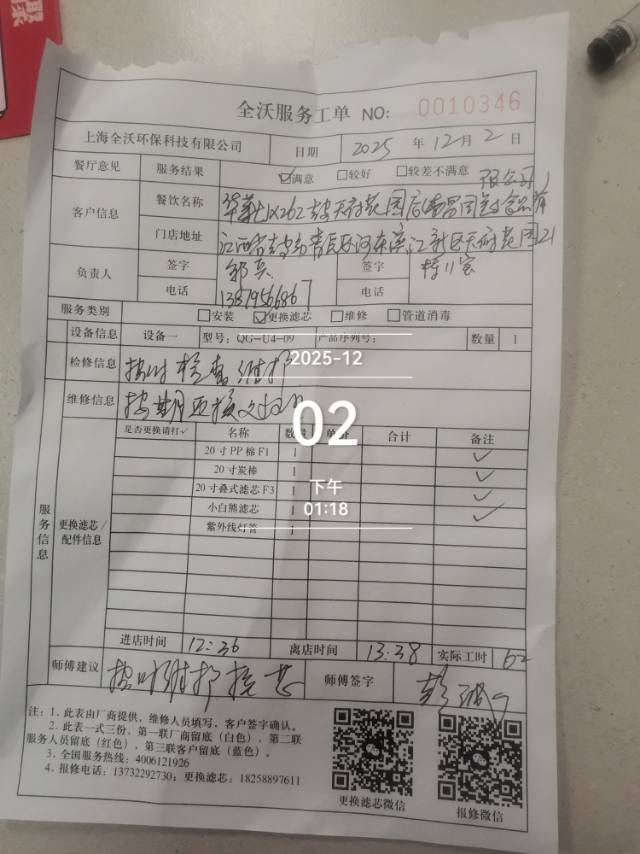 全沃服务工单 NO: 0010346
上海全沃环保科技有限公司 日期 2025 年 12 月 2 日
餐厅意见 服务结果 ☑满意 □较好 □较差不满意
客户信息 餐饮名称
门店地址
负责人 签字 签字
电话 电话
服务类别 □安装 ☑更换滤芯 □维修 □管道消毒
设备信息 设备一 型号: QG-U4-09 产品序列号: 数量 1
检修信息 按时检查维护
2025-12
维修信息 按期更换
02
是否更换请打✓ 名称 数量 单价 合计 备注
20寸PP棉F1 1 ✓
20寸炭棒 1 ✓
下午
20寸叠式滤芯F3 1 ✓
01:18
小白熊滤芯 1 ✓
紫外线灯管 1
服务信息
更换滤芯/
配件信息
进店时间 12:36 离店时间 13:38 实际工时 62
师傅建议 按时维护换芯 师傅签字
注: 1. 此表由厂商提供, 维修人员填写, 客户签字确认。
2. 此表一式三份, 第一联厂商留底(白色), 第二联
服务人员留底(红色), 第三联客户留底(蓝色)。
3. 全国服务热线: 4006121926
4. 报修电话: 13732292730; 更换滤芯: 18258897611
更换滤芯微信 报修微信